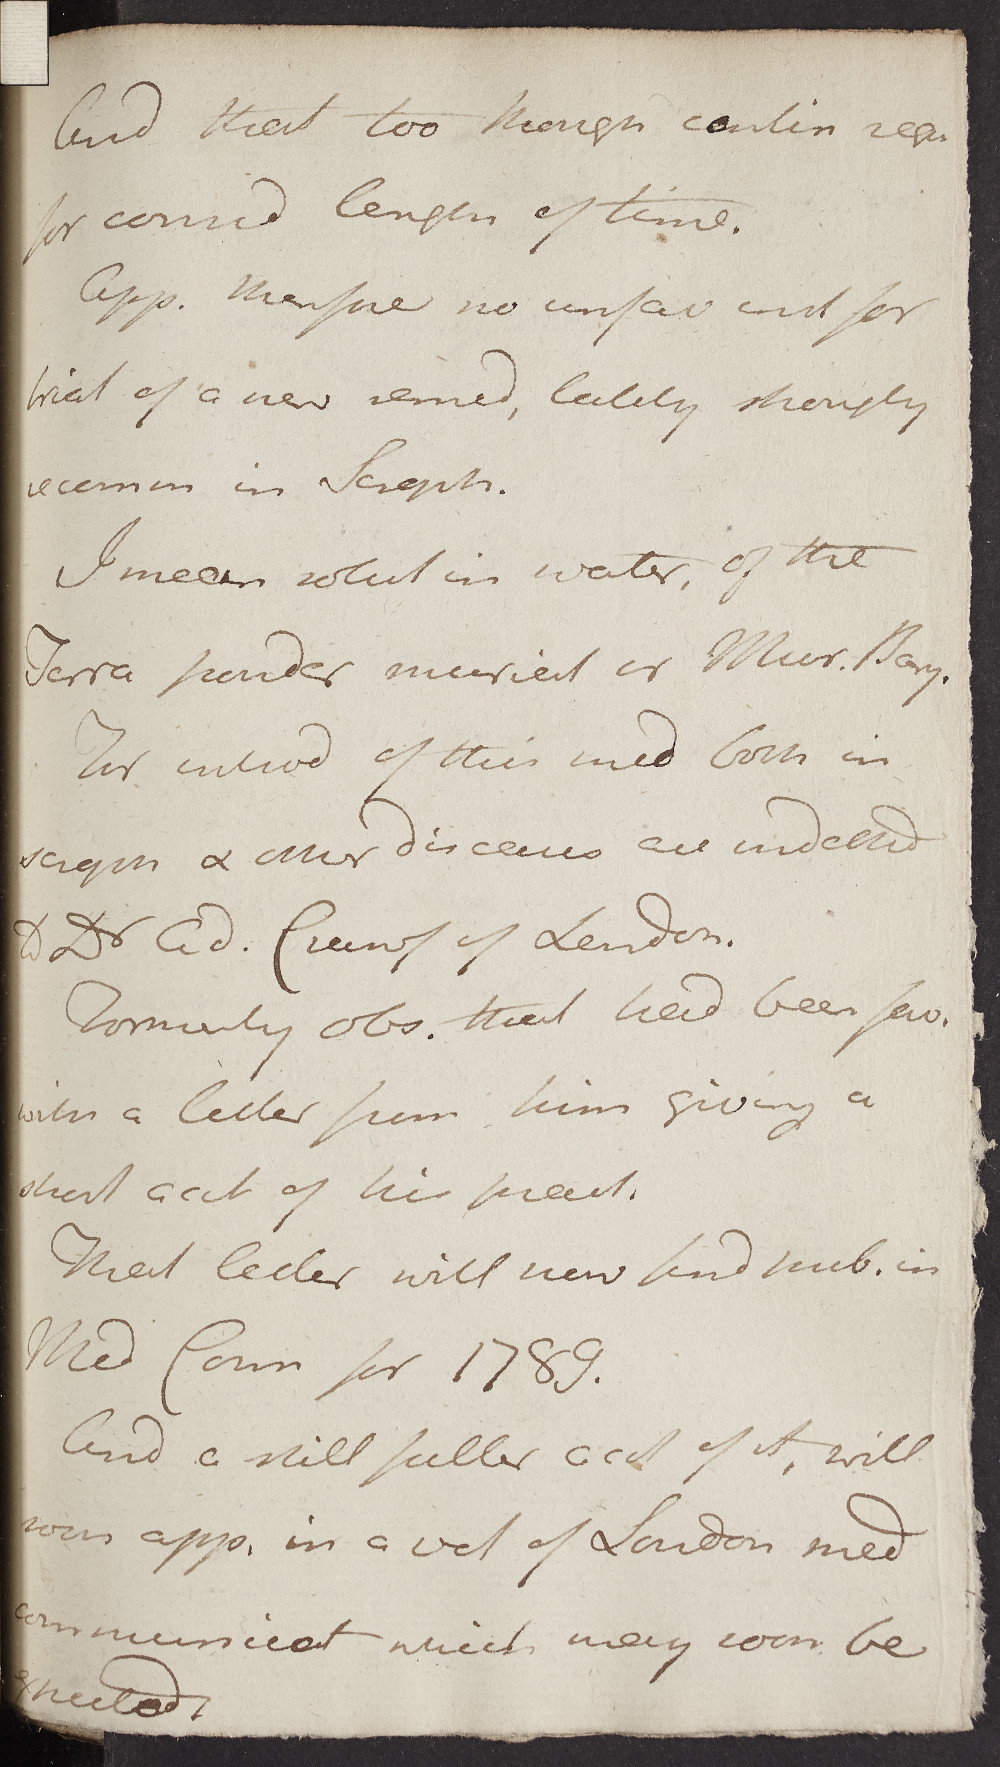 And that too though contin regu
for consid length of time.
App. therefore no unfav inst for
trial of a new remed, lately strongly
recomm in Scroph.
I mean solut in water, of the
Terra ponder muriat or Mur. Bary.
For introd of this med both in
scroph & other diseases are indebted
to Dr Ad. Crawf of London.
Formerly obs. that had been fav.
with a letter from him giving a
short acct of his pract.
That letter will now find pub. in
Med Comm for 1789.
And a still fuller acct of it, will
soon app. in a vol of London med
communicat which may soon be
expected.